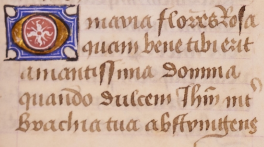 O maria flores Rosa
quam bene tibi erit
amantissima domina
quando dulcem Ihm int
brachia tua abstringens